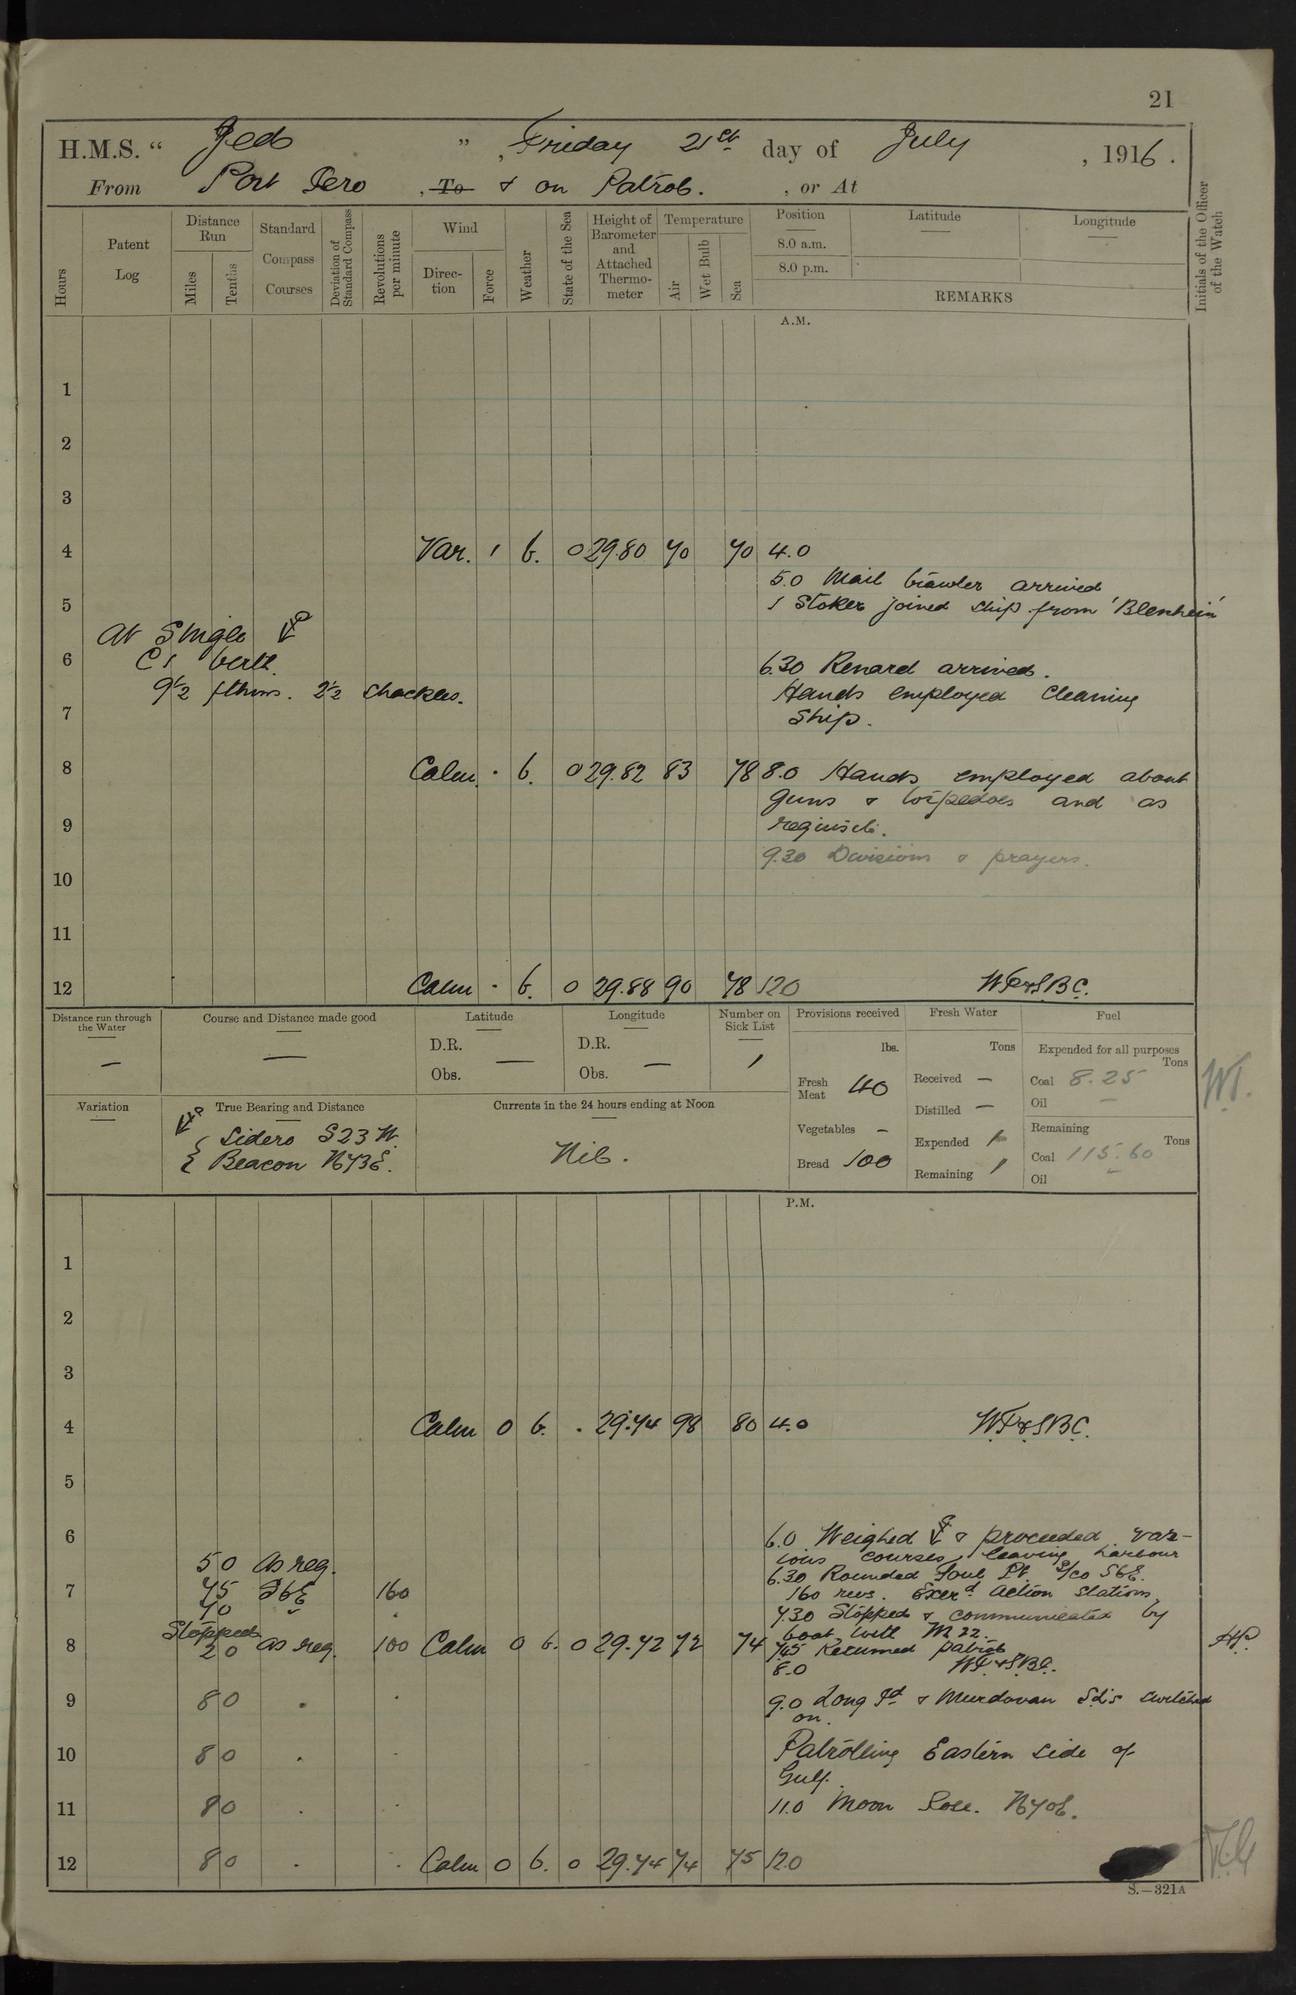 21
H.M.S. “ Jed ” , Friday 21st day of July , 1916 .
From Port Iero , To & on Patrol. , or At
Hours
Patent Log
Distance Run
Miles
Tenths
Standard Compass Courses
Deviation of Standard Compass
Revolutions per minute
Wind
Direction
Force
Weather
State of the Sea
Height of Barometer and Attached Thermometer
Temperature
Air
Wet Bulb
Sea
Position
8.0 a.m.
8.0 p.m.
Latitude
Longitude
REMARKS
Initials of the Officer of the Watch
A.M.
1
2
3
4 Var. 1 b. 0 29.80 70 70 4.0
5.0 Mail trawler arrived
5 1 Stoker joined ship from 'Blenheim'
At Single
6 C1 berth. 6.30 Renard arrived.
9½ fthms. 2½ shackles. Hands employed cleaning
7 ship.
8 Calm . b. 0 29.82 83 78 8.0 Hands employed about
guns & torpedoes and as
9 requisite.
9.30 Divisions & prayers.
10
11
12 Calm - b. 0 29.88 90 78 12.0
Distance run through the Water —
Course and Distance made good —
Latitude
D.R.
Obs. —
Longitude
D.R.
Obs. —
Number on Sick List 1
Provisions received
lbs.
Fresh Meat 40
Vegetables –
Bread 100
Fresh Water
Tons
Received –
Distilled –
Expended 1
Remaining 1
Fuel
Expended for all purposes
Tons
Coal 8.25
Oil –
Remaining
Tons
Coal 115.60
Oil –
Variation
True Bearing and Distance
Sidero S23W.
Beacon N73E.
Currents in the 24 hours ending at Noon
Nil.
P.M.
1
2
3
4 Calm 0 b. . 29.74 98 80 4.0
5
6 6.0 Weighed & proceeded var-
ious courses, leaving harbour
5 0 as req. 6.30 Rounded Foul Pt. S/co SbE.
7 7 5 SbE 160 160 revs. Exerd. Action Stations
7 0 " 7.30 Stopped & communicated by
Stopped boat with M 22.
8 2 0 as req. 100 Calm 0 b. 0 29.72 72 74 7.45 Resumed patrol
8.0
9 8 0 . . 9.0 Long Id. & Murdovan Sd.s switched
on.
10 8 0 . . Patrolling Eastern side of
Gulf.
11 8 0 . . 11.0 Moon Rose. N70E.
12 8 0 . . Calm 0 b. 0 29.74 74 75 12.0
S.—321A